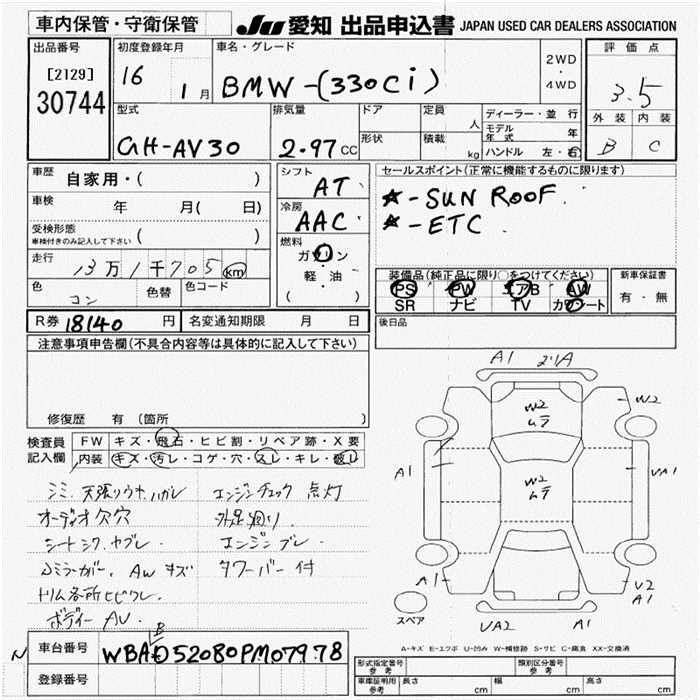 車内保管・守衛保管
JU 愛知 出品申込書 JAPAN USED CAR DEALERS ASSOCIATION
出品番号
[2129]
30744
初度登録年月
16 1月
車名・グレード
BMW-(330Ci)
2WD
・
4WD
評価点
3.5
外装 内装
B C
型式
GH-AV30
排気量
2.97CC
ドア
形状
定員
人
積載
kg
ディーラー・並行
モデル年式 年
ハンドル 左・右
車歴 自家用・( )
車検 年 月( 日)
受検形態
車検付きのみ記入して下さい ( )
走行
13万1千705km
色
コン
色替
色コード
R券 18140 円
名変通知期限 月 日
シフト
AT
冷房
AAC
燃料
ガソリン
軽・油
( )
セールスポイント(正常に機能するものに限ります)
★-SUN ROOF.
★-ETC
装備品(純正品に限り○をつけてください)
PS PW エアB AW
SR ナビ TV カワシート
新車保証書
有・無
後日品
注意事項申告欄(不具合内容等は具体的に記入して下さい)
修復歴 有 (箇所 )
検査員
記入欄
FW キズ・飛石・ヒビ割・リペア跡・X要
内装 キズ・汚レ・コゲ・穴・スレ・キレ・破レ
シミ 天張リウキ、ハガレ
オーディオ欠穴
シートシワ、ヤブレ.
AW キズ
トリム各所ヒビワレ.
ボディー AU.
エンジンチェック 点灯
外足廻り.
エンジン ブレ.
タワーバー付
A1
W2
ムラ
W2
W2
ムラ
A1
A1
A1
UA2
A1
U2
A1
スペア
A-キズ E-エクボ U-凹み W-補修跡 S-サビ C-腐食 XX-交換済
車台番号
B
WBAD52080PM07978
登録番号
形式指定番号
参考
類別区分番号
参考
車庫証明用
参考
長さ cm 幅 cm 高さ cm